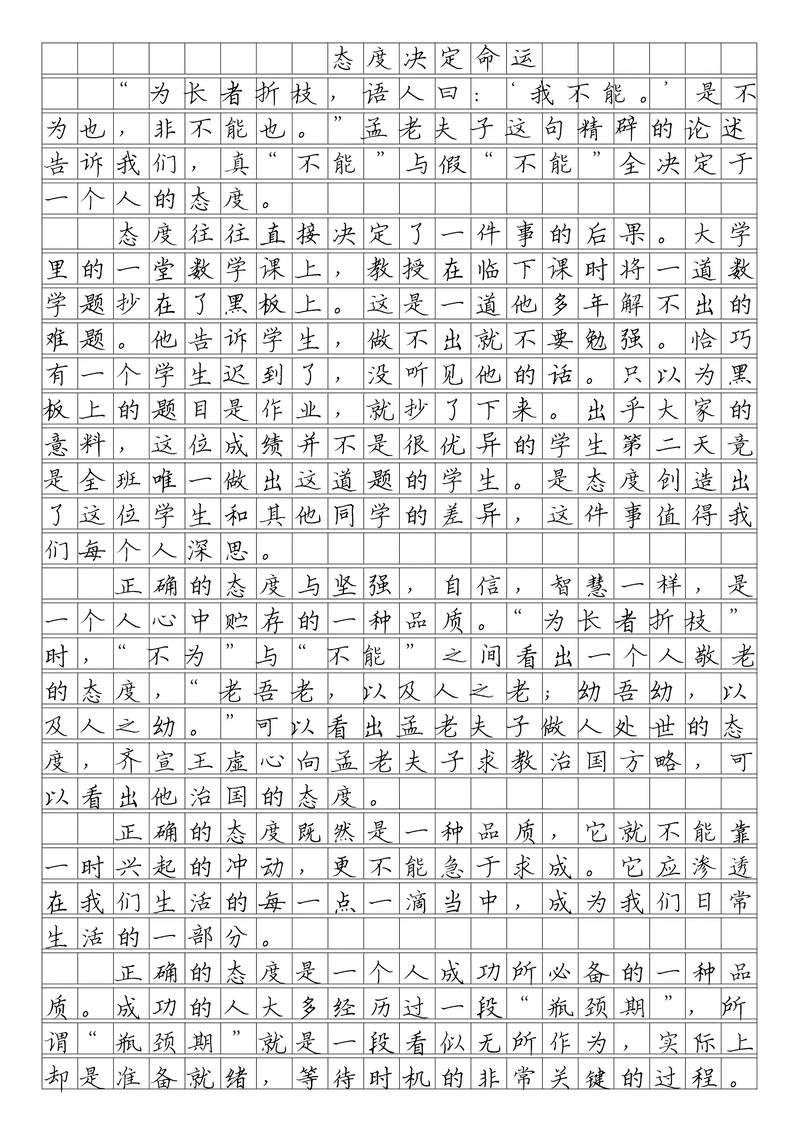 态度决定命运
“为长者折枝，语人曰：‘我不能。’是不
为也，非不能也。”孟老夫子这句精辟的论述
告诉我们，真“不能”与假“不能”全决定于
一个人的态度。
态度往往直接决定了一件事的后果。大学
里的一堂数学课上，教授在临下课时将一道数
学题抄在了黑板上。这是一道他多年解不出的
难题。他告诉学生，做不出就不要勉强。恰巧
有一个学生迟到了，没听见他的话。只以为黑
板上的题目是作业，就抄了下来。出乎大家的
意料，这位成绩并不是很优异的学生第二天竟
是全班唯一做出这道题的学生。是态度创造出
了这位学生和其他同学的差异，这件事值得我
们每个人深思。
正确的态度与坚强，自信，智慧一样，是
一个人心中贮存的一种品质。“为长者折枝”
时，“不为”与“不能”之间看出一个人敬老
的态度，“老吾老，以及人之老；幼吾幼，以
及人之幼。”可以看出孟老夫子做人处世的态
度，齐宣王虚心向孟老夫子求教治国方略，可
以看出他治国的态度。
正确的态度既然是一种品质，它就不能靠
一时兴起的冲动，更不能急于求成。它应渗透
在我们生活的每一点一滴当中，成为我们日常
生活的一部分。
正确的态度是一个人成功所必备的一种品
质。成功的人大多经历过一段“瓶颈期”，所
谓“瓶颈期”就是一段看似无所作为，实际上
却是准备就绪，等待时机的非常关键的过程。